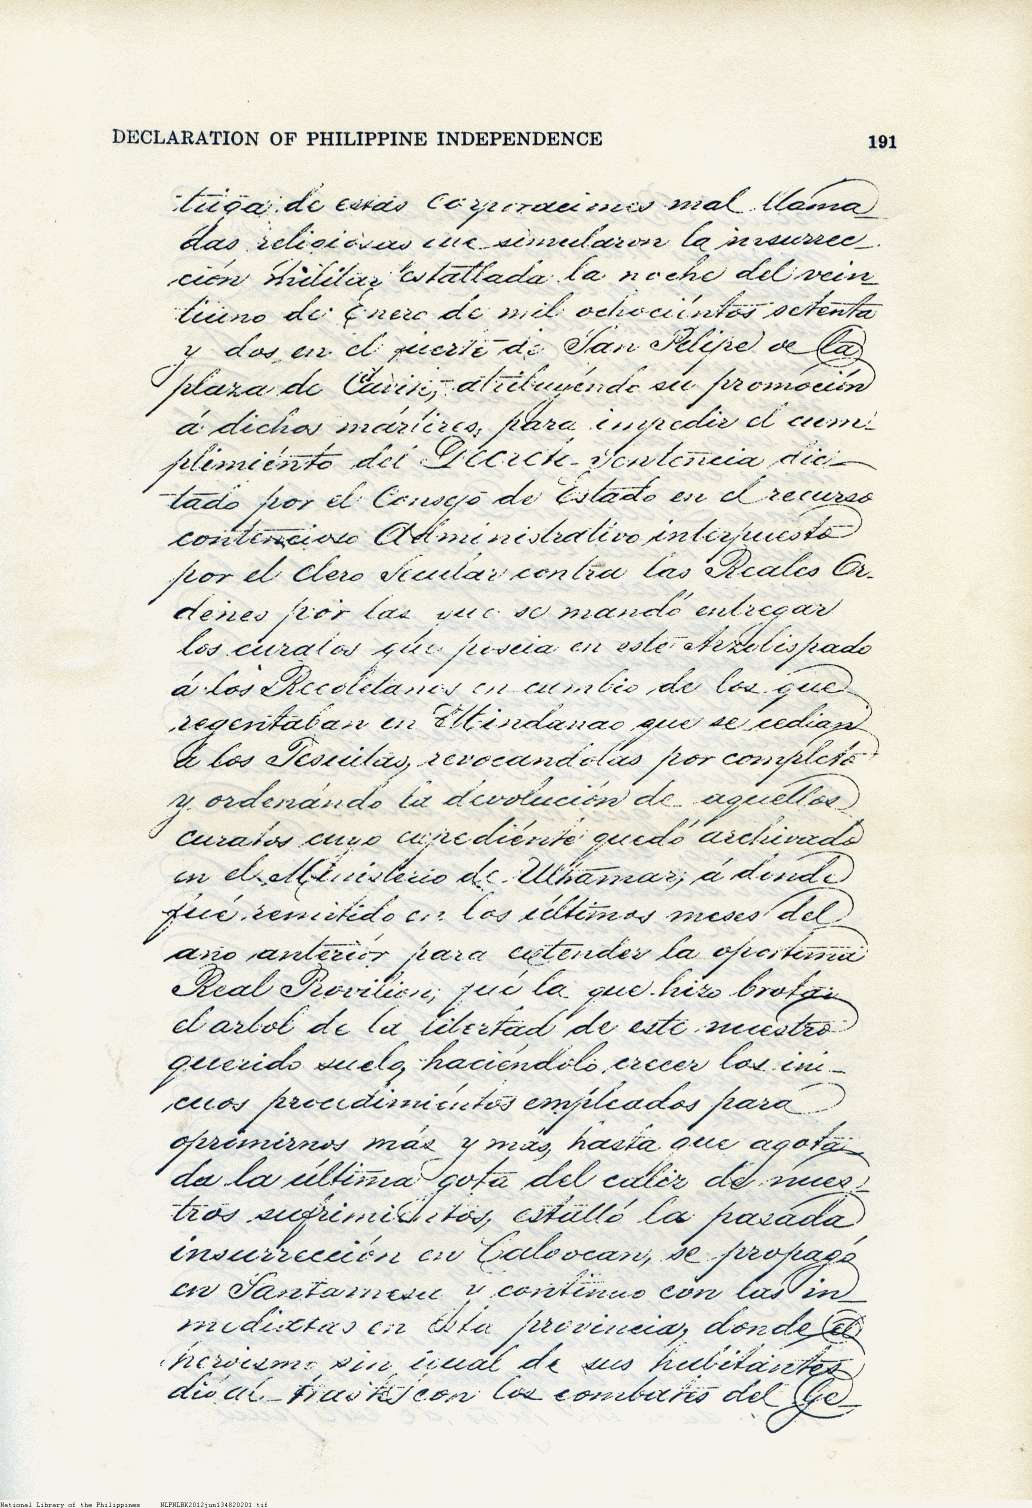 DECLARATION OF PHILIPPINE INDEPENDENCE 191
triga de estas corporaciones mal llama_
das religiosas que simularon la insurrec_
ción militar estallada la noche del vein_
tiuno de Enero de mil ochociéntos setenta
y dos en el fuerte de San Felipe de la
plaza de Cavite, atribuyéndo su promoción
á dichos mártires, para impedir el cum-
plimiénto del Decreto-Sentencia dic_
tado por el Consejo de Estado en el recurso
contencioso Administrativo interpuesto
por el Clero Secular contra las Reales Or-
denes por las que se mandó entregar
los curatos que poseia en este Arzobispado
á los Recoletanos en cambio de los que
regentaban en Mindanao que se cedian
á los Jesuitas, revocandolas por completo
y ordenándo la devolución de aquellos
curatos cuyo expediénte quedó archivado
en el Ministerio de Ultramar, á donde
fué remitido en los últimos meses del
año anteriór para extender la oportuna
Real Provilion, fué la que hizo brotar
el arbol de la libertad de este nuestro
querido suelo, haciéndolo crecer los ini_
cuos procedimiéntos empleados para
oprimirnos más y más, hasta que agota_
da la última gota del caliz de nues_
tros sufrimiéntos, estalló la pasada
insurrección en Caloocan, se propagó
en Santamesa y continuo con las in_
mediatas en esta provincia, donde el
heroismo sin igual de sus habitantes
dió al traste con los combates del Ge_
National Library of the Philippines NLPNLBK2012jun134820201 tif